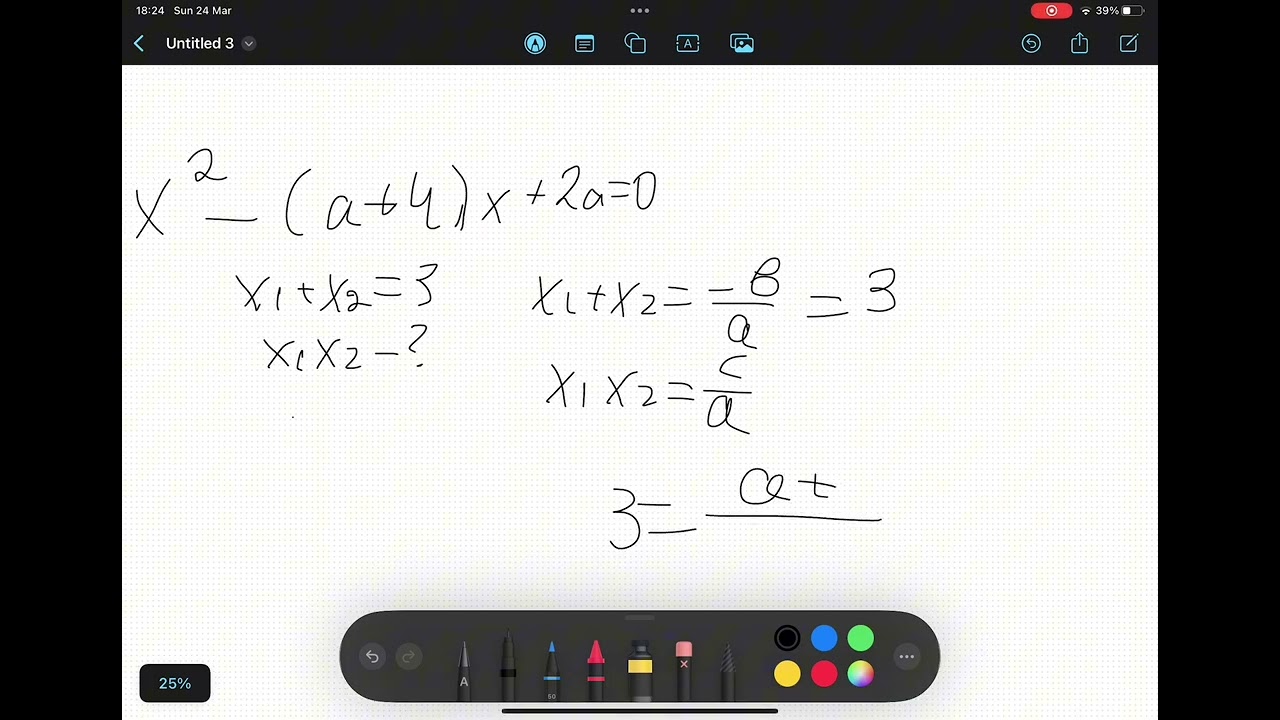 18:24 Sun 24 Mar
39%
Untitled 3
A
x² - (a+4)x + 2a=0
x₁+x₂=3
x₁x₂-?
x₁+x₂ = -B/a = 3
x₁x₂ = c/a
3 = a+
A
50
25%